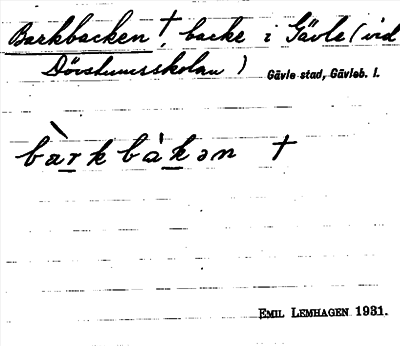 Barkbacken †, backe i Gävle (vid
Dövstumsskolan) Gävle stad, Gävleb. l.
bàrkbákən †
EMIL LEMHAGEN 1931.